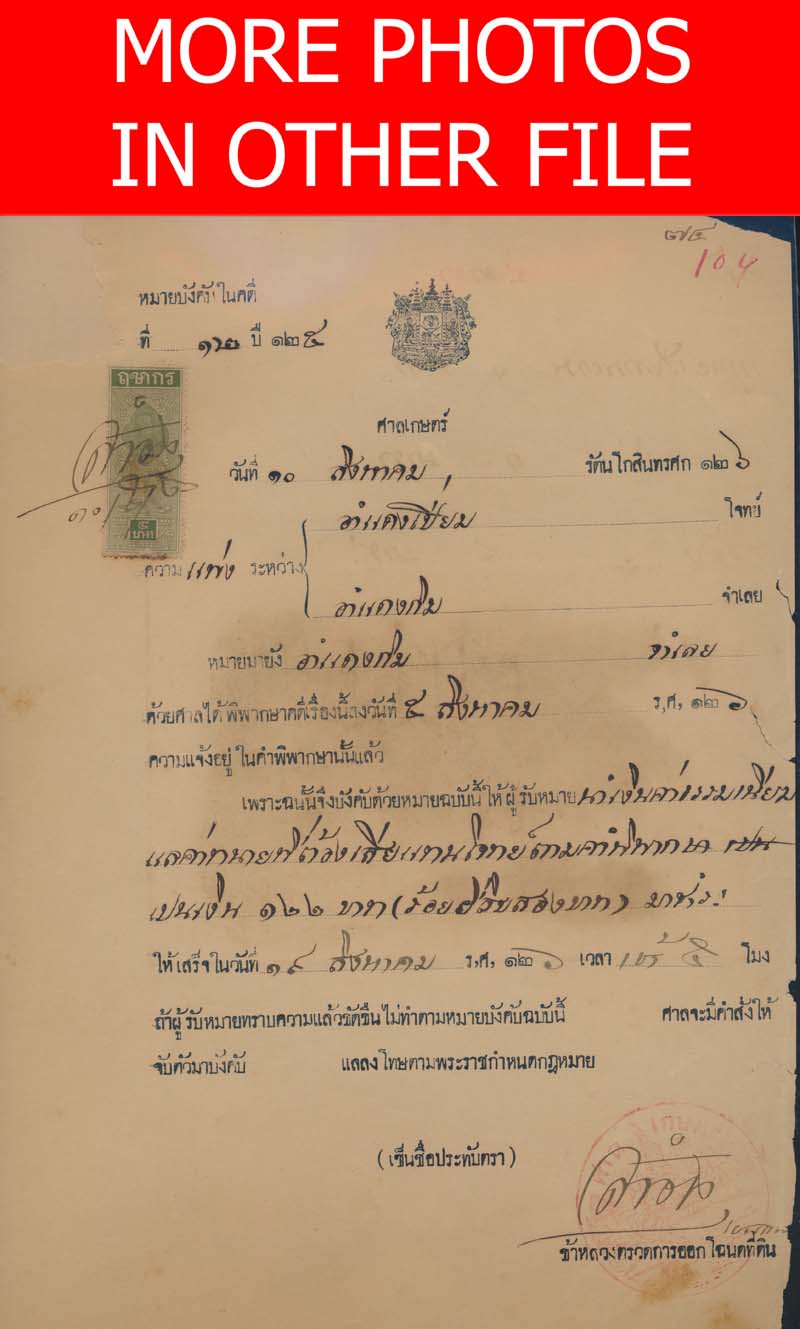 MORE PHOTOS
IN OTHER FILE
๗๕
104
หมายบังคับในคดี
ที่ ๑๒ ปี ๑๒๕
ฤชากร
๕ บาท
ศาลเกษตร์
วันที่ ๑๐ สิงหาคม, รัตนโกสินทรศก ๑๒๖
อำแดงเขียม โจทย์
ความ แพ่ง ระหว่าง
อำแดงก่ำ จำเลย
หมายมายัง จำเลย
ด้วยศาลได้พิพากษาคดีเรื่องนี้ลงวันที่ ๕ สิงหาคม ร,ศ, ๑๒๖
ความแจ้งอยู่ในคำพิพากษานั้นแล้ว
เพราะฉนั้นจึงบังคับด้วยหมายฉบับนี้ให้ผู้รับหมาย นำเงินค่าธรรมเนียม
แลค่าทนายที่ต้องเสียแทนโจทย์ตามคำพิพากษา
เปนเงิน ๑๒๒ บาท (ร้อยยี่สิบสองบาท)
ให้เสร็จในวันที่ ๑๙ สิงหาคม ร,ศ, ๑๒๖ เวลา โมง
ถ้าผู้รับหมายทราบความแล้วขัดขืนไม่ทำตามหมายบังคับฉบับนี้ ศาลจะมีคำสั่งให้
จับตัวมาบังคับ แลลงโทษตามพระราชกำหนดกฎหมาย
(เซ็นชื่อประทับตรา)
ข้าหลวงตรวดการออกโฉนดที่ดิน